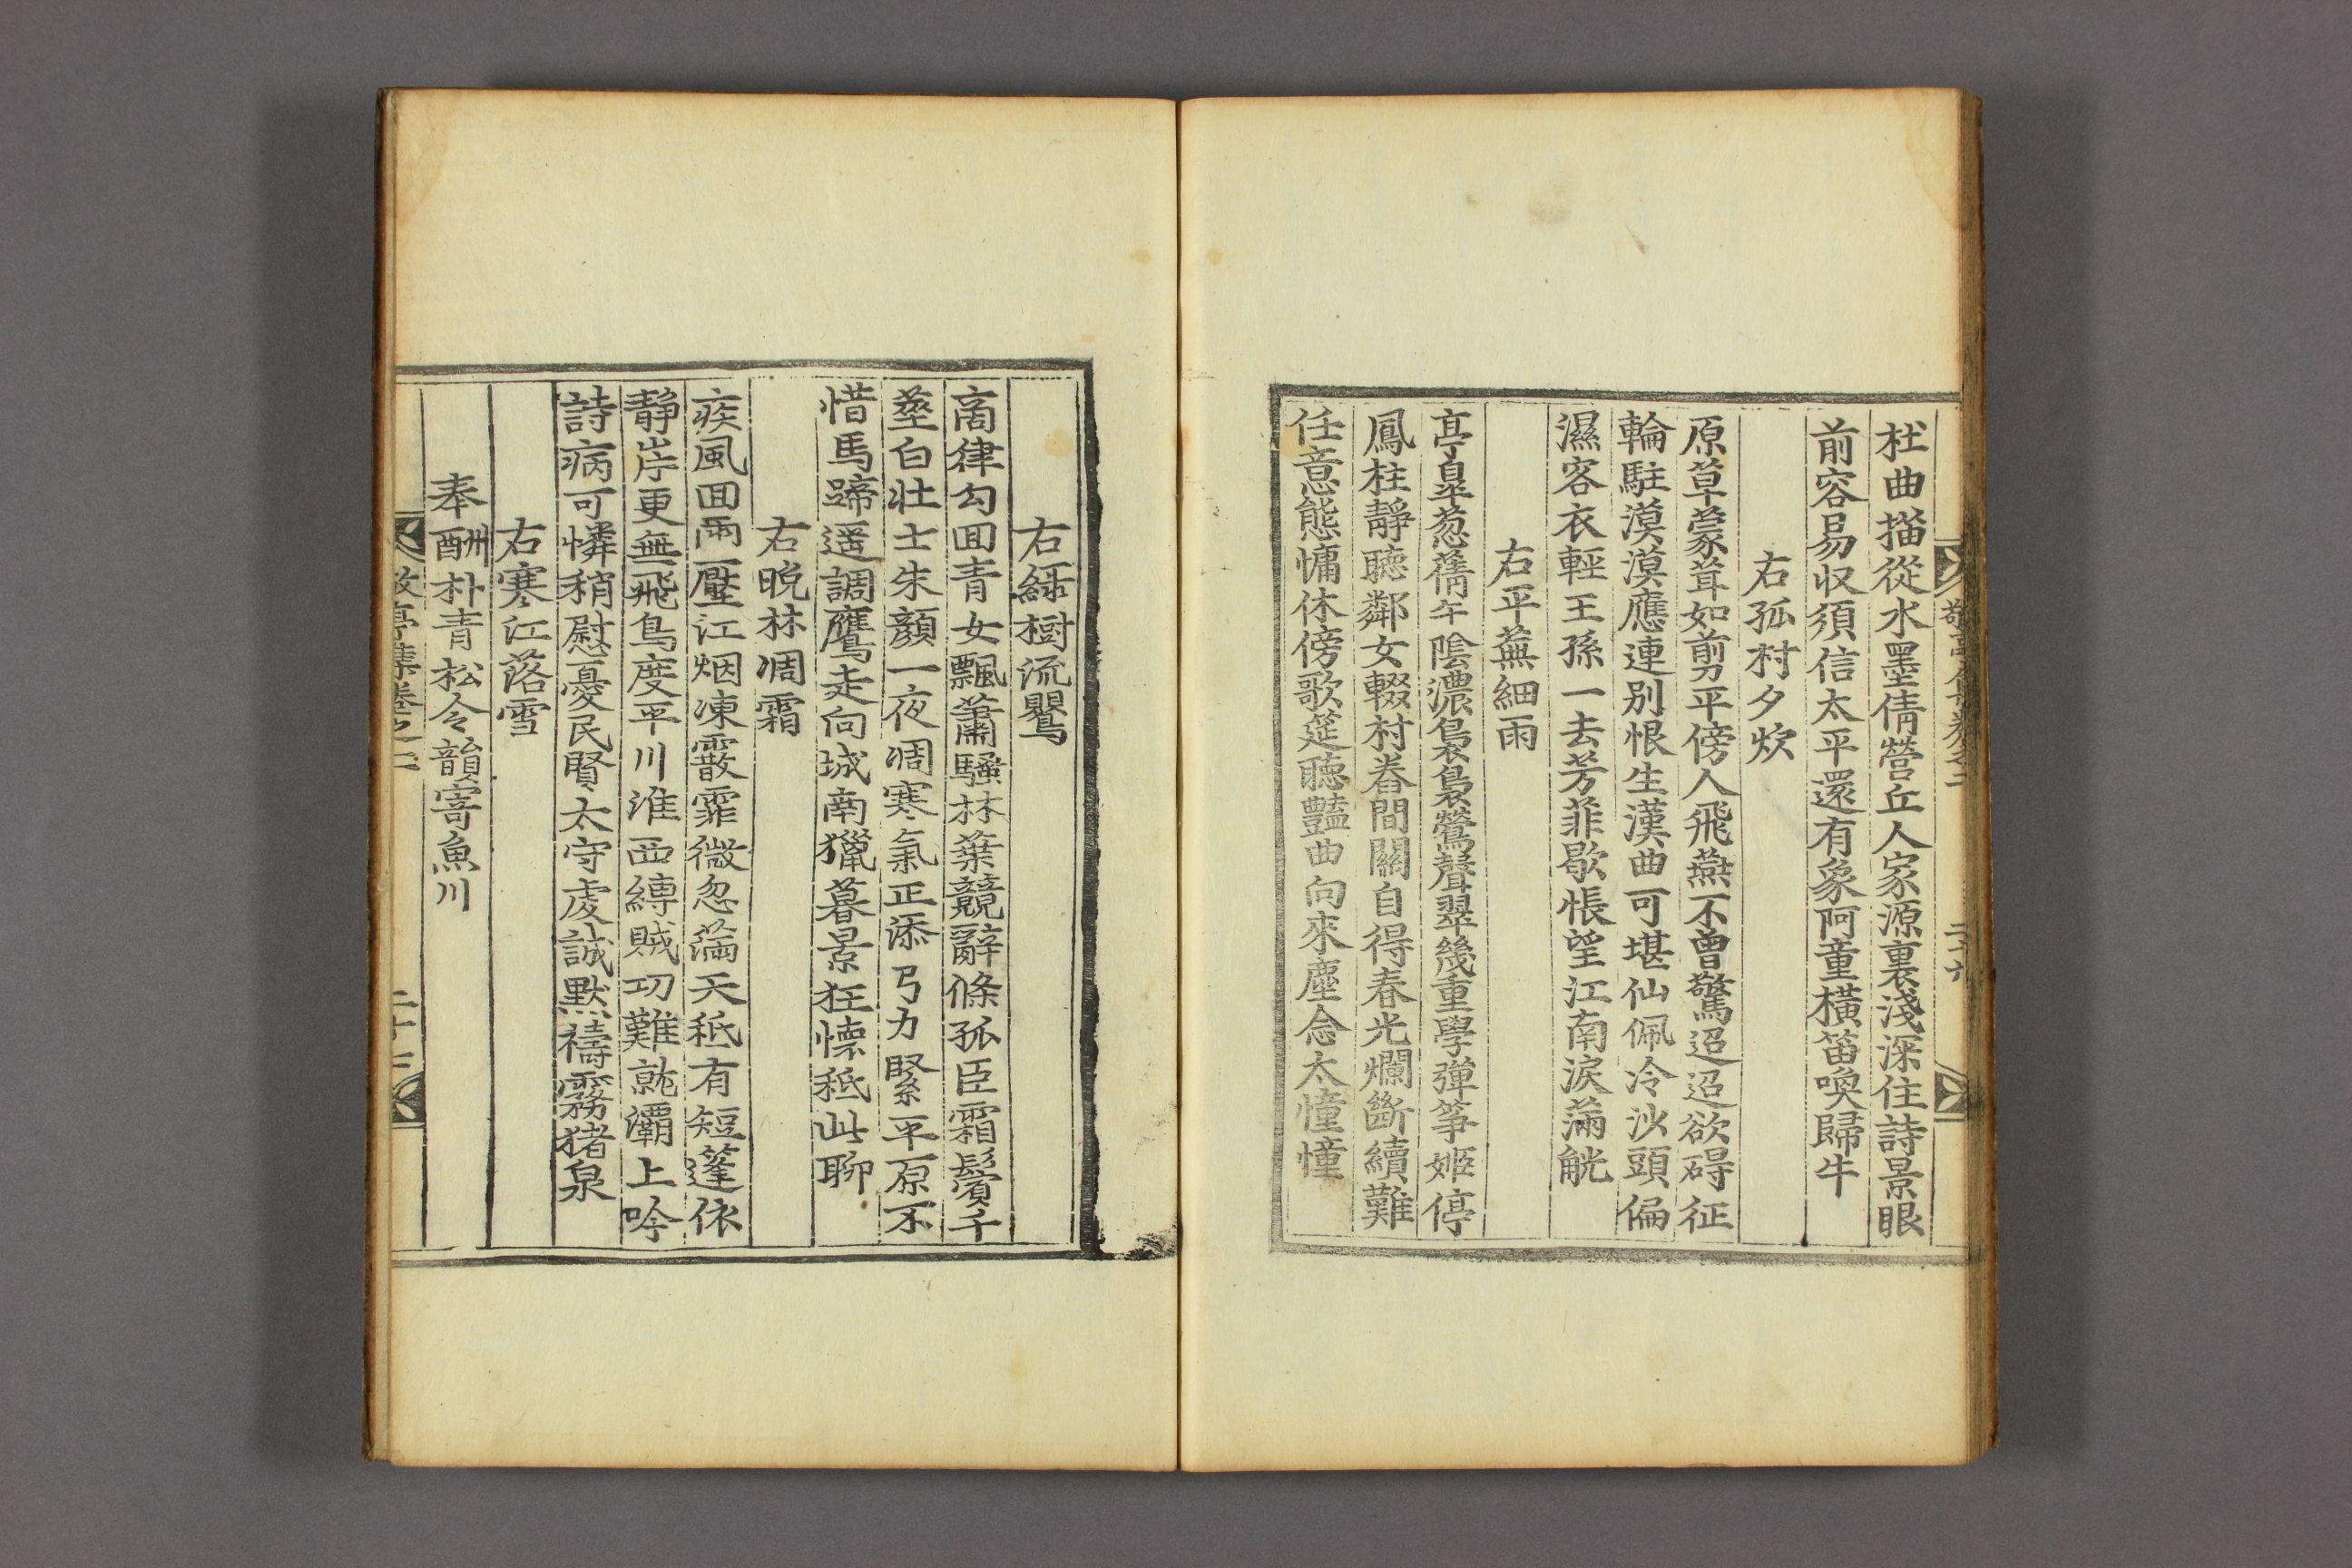 杜曲描從水墨倩營丘人家源裏淺深住詩景眼
前容易収須信太平還有象阿童橫笛喚歸牛
右孤村夕炊
原草蒙茸如剪平傍人飛燕不曾驚迢迢欲碍征
輪駐漠漠應連別恨生漢曲可堪仙佩冷沙頭偏
濕客衣輕王孫一去芳菲歇悵望江南淚滿觥
右平蕪細雨
亭皐葱蒨午陰濃裊裊鶯聲翠幾重學彈筝姬停
鳳柱靜聽鄰女輟村舂間關自得春光爛斷續難
任意態慵休傍歌筵聽豔曲向來塵念太憧憧
右綠樹流鸎
商律勾回青女飄蕭騷林葉競辭條孤臣霜鬢千
莖白壯士朱顔一夜凋寒氣正添弓力緊平原不
惜馬蹄遥調鷹走向城南獵暮景狂懷秪此聊
右晩林凋霜
疾風回雨壓江烟凍霰霏微忽滿天秪有短篷依
静岸更無飛鳥度平川淮西縛賊功難就灞上吟
詩病可憐稍慰憂民賢太守虔誠默禱霧猪泉
右寒江落雪
奉酬朴青松令韻寄魚川
敬亭集卷之二